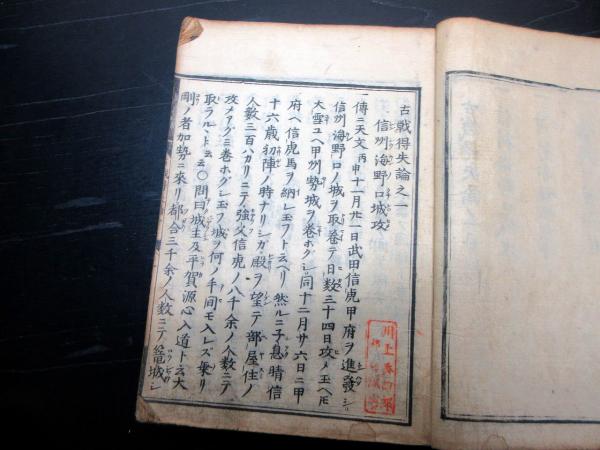 古戰得失論之一
信州海野口城攻
一傳ニ天文丙申十一月廿一日武田信虎甲府ヲ進發シ
信州海野口ノ城ヲ取巻テ日数三十四日攻メ玉ヘ𪜈
大雪ユヘ甲州勢城ヲ巻ホグシ同十二月廿六日ニ甲
府ヘ信虎馬ヲ納レ玉フト云ヘリ然ルニ子息晴信
十六歳初陣ノ時ナリシガ殿ヲ望テ部屋住ノ
人数三百ハカリニテ強父信虎ノ八千余ノ人数ニテ
攻メアグミ巻ホグシ玉フ城ヲ何ノ手間モ入レズ乗リ
取ラルヽト云云○問曰城主及平賀源心入道トテ大
剛ノ者加勢ニ來リ都合三千余ノ人数ニテ篭城シ
川上